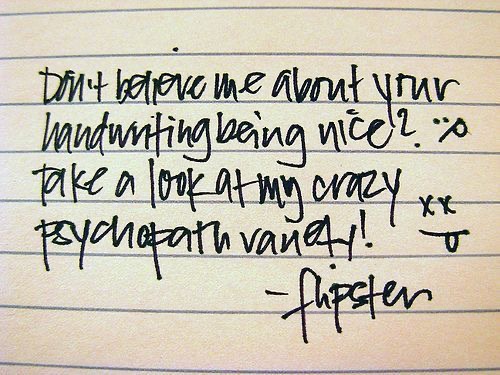 Don't believe me about your
handwriting being nice?
take a look at my crazy
psychopath variety!
- flipster